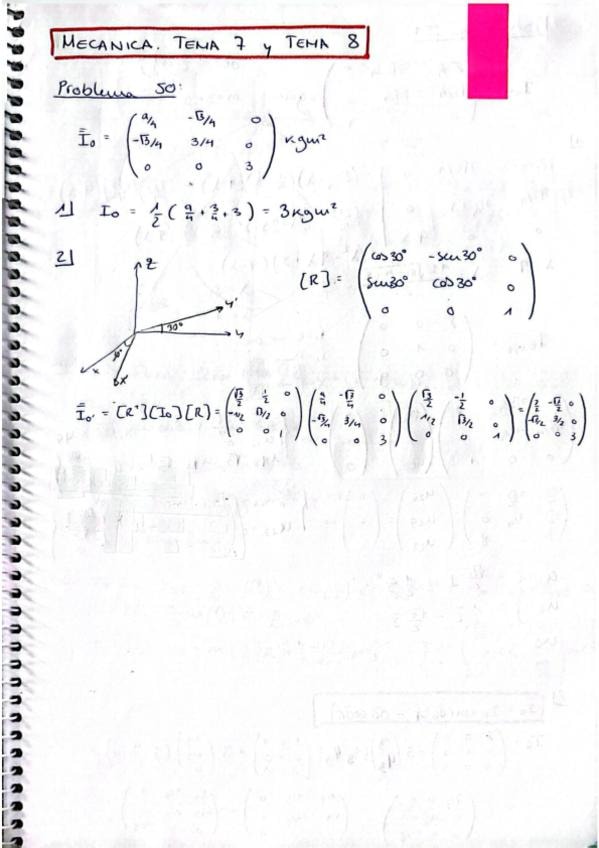 MECANICA. TEMA 7 y TEMA 8
Problema 50:
I₀ = (9/4 -√3/4 0
-√3/4 3/4 0
0 0 3) kgm²
1] I₀ = 1/2 (9/4 + 3/4 + 3) = 3 kgm²
2]
z
y'
30°
y
x
x'
[R] = (cos30° -sen30° 0
sen30° cos30° 0
0 0 1)
I₀' = [Rᵗ][I₀][R] = (√3/2 1/2 0
-1/2 √3/2 0
0 0 1) (9/4 -√3/4 0
-√3/4 3/4 0
0 0 3) (√3/2 -1/2 0
1/2 √3/2 0
0 0 1) = (3/2 -√3/2 0
-√3/2 3/2 0
0 0 3)